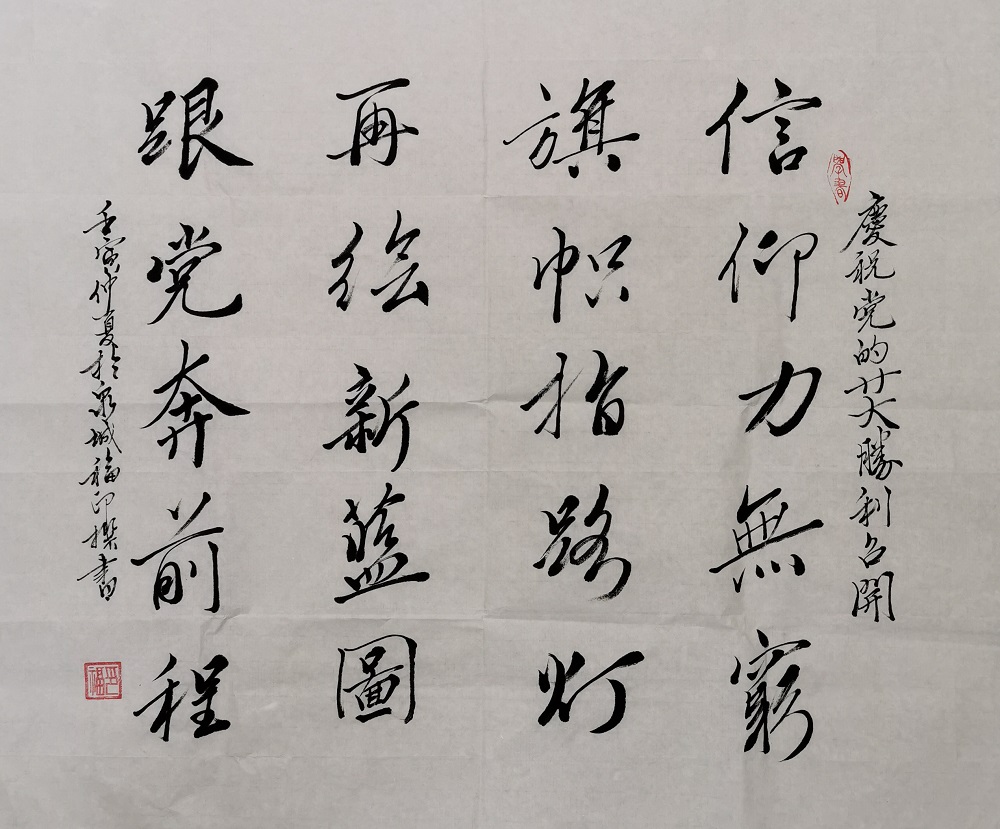 慶祝党的廿大勝利召開
信仰力無窮
旗帜指路灯
再绘新蓝圖
跟党奔前程
壬寅仲夏於泉城福印撰書